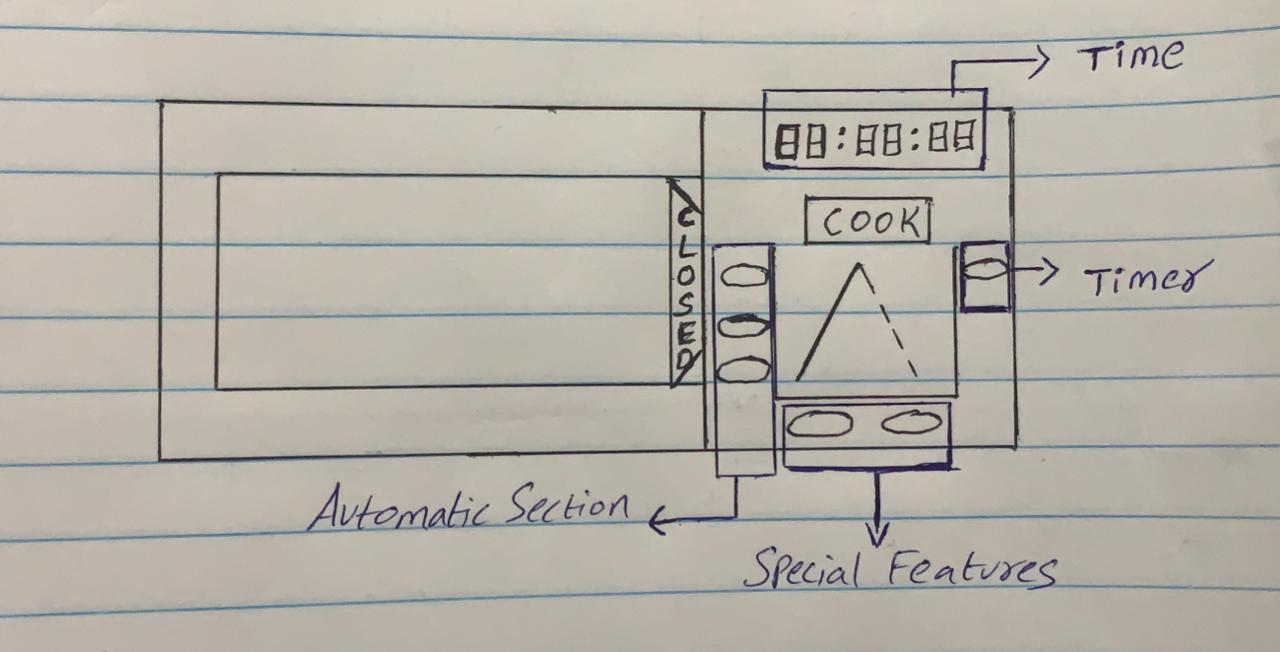 Time
88:88:88
COOK
CLOSED
Timer
Automatic Section
Special Features